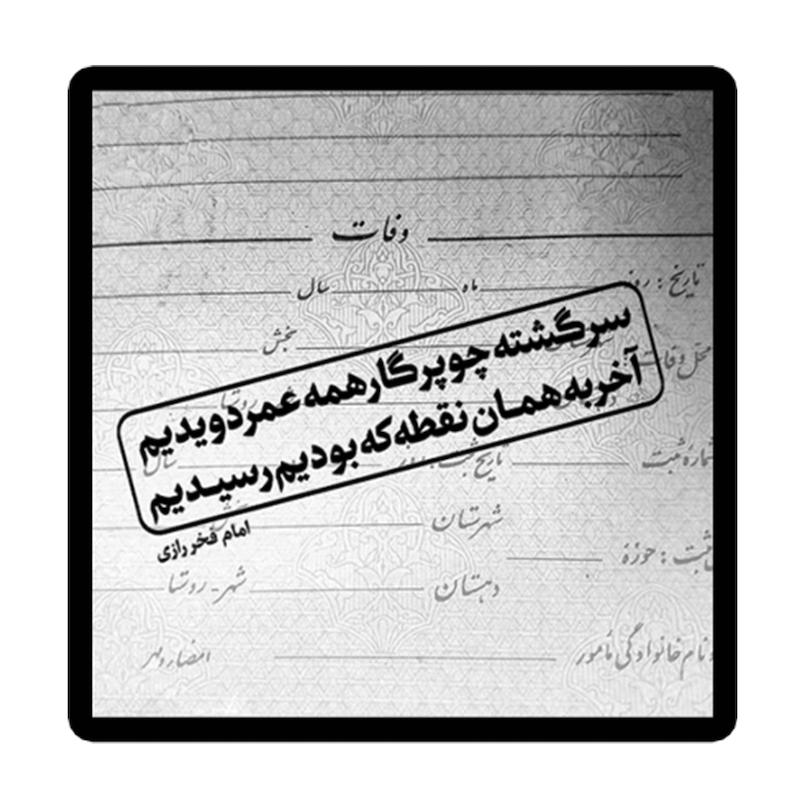 وفات
تاریخ : روز ماه سال
محل وفات بخش
سرگشته چو پرگار همه عمر دویدیم
آخر به همان نقطه که بودیم رسیدیم
امام فخر رازی
شماره ثبت تاریخ ثبت : روز سال
شهرستان بخش
ثبت : حوزه
دهستان شهر - روستا
نام خانوادگی مأمور
امضاء و مهر